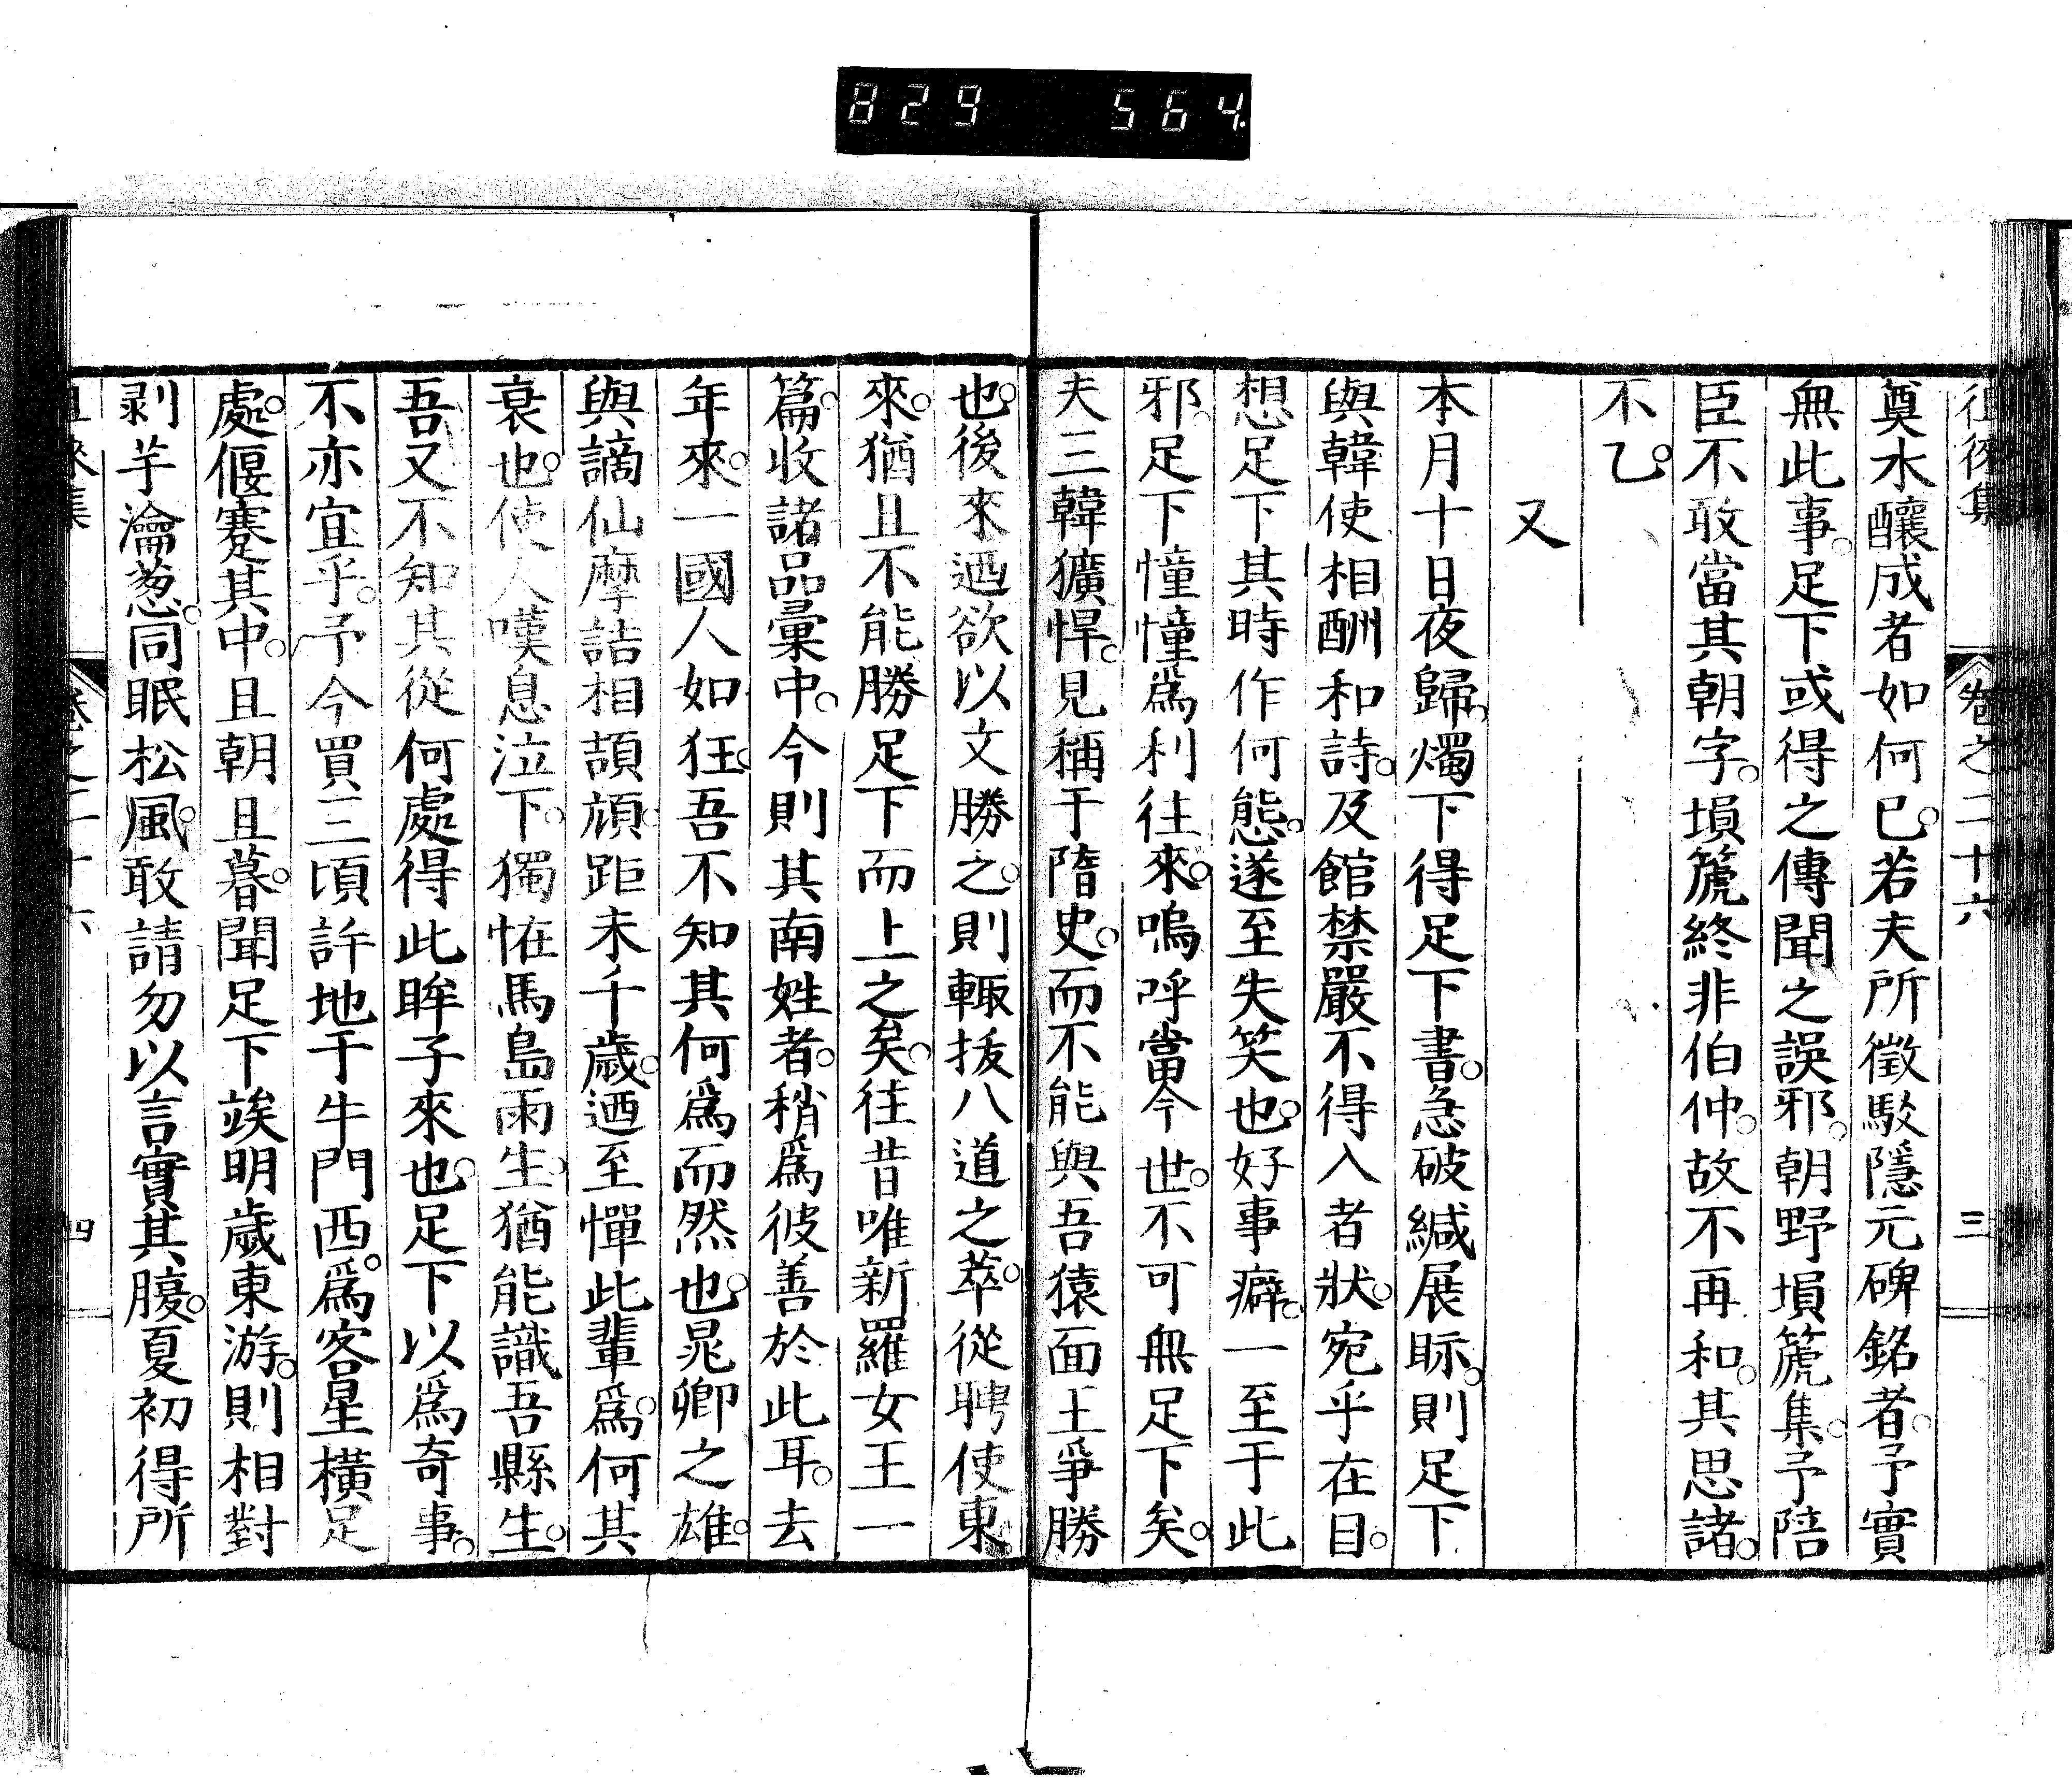 829 564
徂徠集 卷之二十六 三
奠水釀成者如何已。若夫所徵駁隱元碑銘者。予實
無此事。足下或得之傳聞之誤邪。朝野塤篪集。予陪
臣不敢當其朝字。塤篪終非伯仲。故不再和。其思諸。
不乙。
又
本月十日夜歸。燭下得足下書。急破緘展眎。則足下
與韓使相酬和詩。及館禁嚴不得入者狀。宛乎在目。
想足下其時作何態。遂至失笑也。好事癖。一至于此
邪。足下憧憧爲利往來。嗚呼當今世。不可無足下矣。
夫三韓獷悍。見稱于隋史。而不能與吾猿面王爭勝
也。後來迺欲以文勝之。則輙拔八道之萃。從聘使東
來。猶且不能勝足下而上之矣。往昔唯新羅女王一
篇。收諸品彙中。今則其南姓者。稍爲彼善於此耳。去
年來。一國人如狂。吾不知其何爲而然也。晁卿之雄。
與謫仙摩詰相頡頏。距未千歲。迺至憚此輩爲。何其
衰也。使人嘆息泣下。獨恠馬島雨生。猶能識吾縣生。
吾又不知其從何處得此眸子來也。足下以爲奇事。
不亦宜乎。予今買三頃許地于牛門西。爲客星橫足
處。偃蹇其中。且朝且暮。聞足下竢明歲東游。則相對
剥芋瀹葱。同眠松風。敢請勿以言實其腹。夏初得所
徂徠集 卷之二十六 四